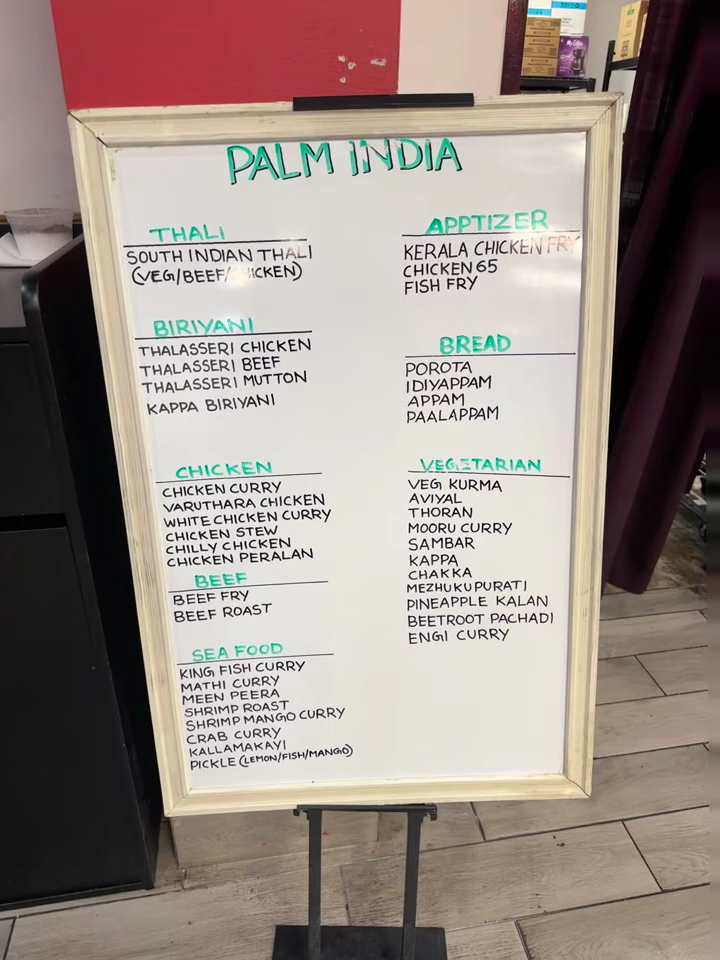 PALM INDIA
THALI
SOUTH INDIAN THALI
(VEG/BEEF/CHICKEN)
BIRIYANI
THALASSERI CHICKEN
THALASSERI BEEF
THALASSERI MUTTON
KAPPA BIRIYANI
CHICKEN
CHICKEN CURRY
VARUTHARA CHICKEN
WHITE CHICKEN CURRY
CHICKEN STEW
CHILLY CHICKEN
CHICKEN PERALAN
BEEF
BEEF FRY
BEEF ROAST
SEA FOOD
KING FISH CURRY
MATHI CURRY
MEEN PEERA
SHRIMP ROAST
SHRIMP MANGO CURRY
CRAB CURRY
KALLAMAKAYI
PICKLE (LEMON/FISH/MANGO)
APPTIZER
KERALA CHICKEN FRY
CHICKEN 65
FISH FRY
BREAD
POROTA
IDIYAPPAM
APPAM
PAALAPPAM
VEGETARIAN
VEG KURMA
AVIYAL
THORAN
MOORU CURRY
SAMBAR
KAPPA
CHAKKA
MEZHUKUPURATI
PINEAPPLE KALAN
BEETROOT PACHADI
ENGI CURRY